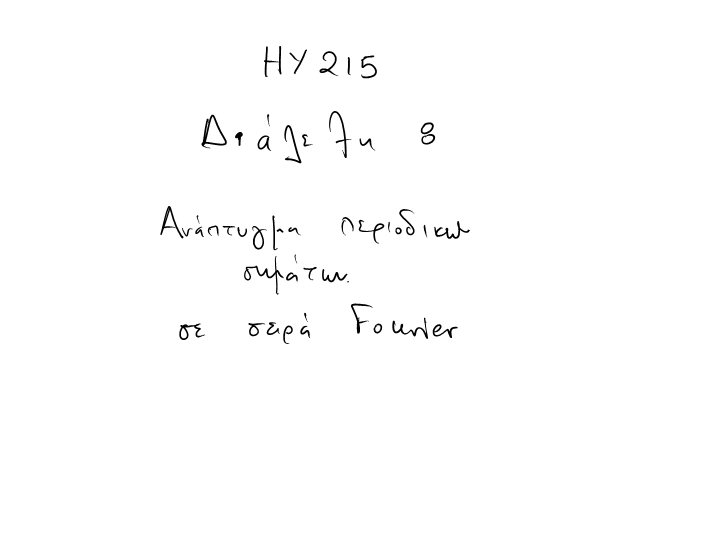 ΗΥ 215
Διάλεξη 8
Ανάπτυγμα περιοδικών
σημάτων
σε σειρά Fourier